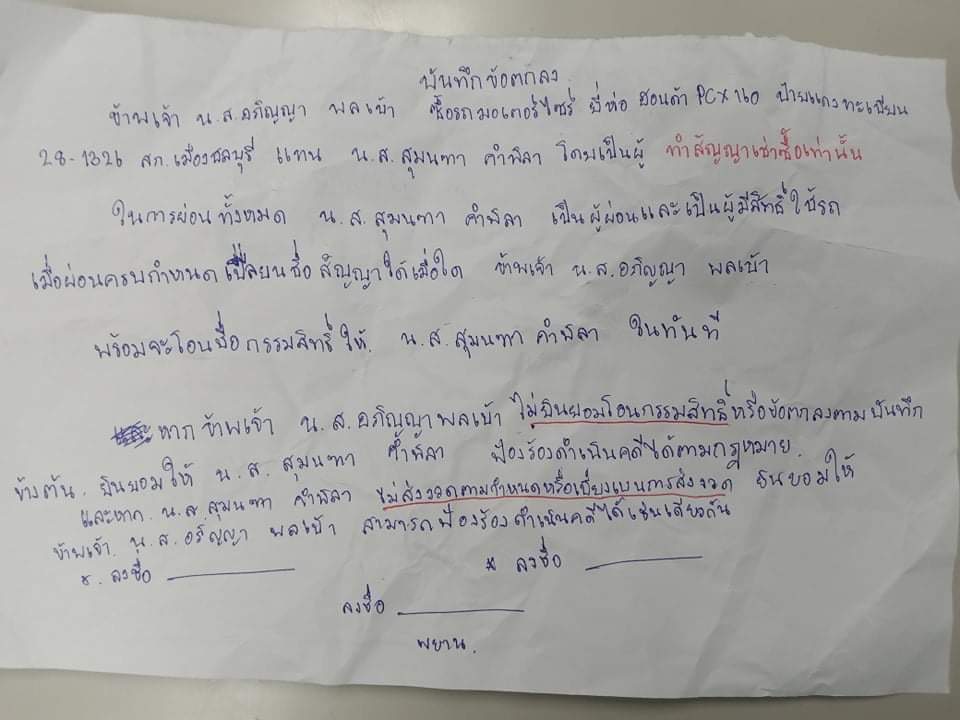 บันทึกข้อตกลง
ข้าพเจ้า น.ส.อภิญญา พลเบ้า ซื้อรถมอเตอร์ไซร์ ยี่ห่อ ฮอนด้า PCX 160 ป้ายแดงทะเบียน
28-1326 สภ.เมืองชลบุรี แทน น.ส.สุมนฑา คำพิลา โดยเป็นผู้ ทำสัญญาเช่าซื้อเท่านั้น
ในการผ่อนทั้งหมด น.ส.สุมนฑา คำพิลา เป็นผู้ผ่อนและเป็นผู้มีสิทธิ์ใช้รถ
เมื่อผ่อนครบกำหนดเปลี่ยนชื่อสัญญาได้เมื่อใด ข้าพเจ้า น.ส.อภิญญา พลเบ้า
พร้อมจะโอนชื่อกรรมสิทธิ์ให้ น.ส.สุมนฑา คำพิลา ในทันที
หากข้าพเจ้า น.ส.อภิญญา พลเบ้า ไม่ยินยอมโอนกรรมสิทธิ์หรือข้อตกลงตามบันทึก
ข้างต้น. ยินยอมให้ น.ส. สุมนฑา คำพิลา ฟ้องร้องดำเนินคดีได้ตามกฎหมาย.
และหาก น.ส.สุมนฑา คำพิลา ไม่ส่งงวดตามกำหนดหรือเบี่ยงเบนการส่งงวด ยินยอมให้
ข้าพเจ้า น.ส.อภิญญา พลเบ้า สามารถฟ้องร้องดำเนินคดีได้เช่นเดียวกัน
x. ลงชื่อ __________ x ลงชื่อ __________
ลงชื่อ __________
พยาน.